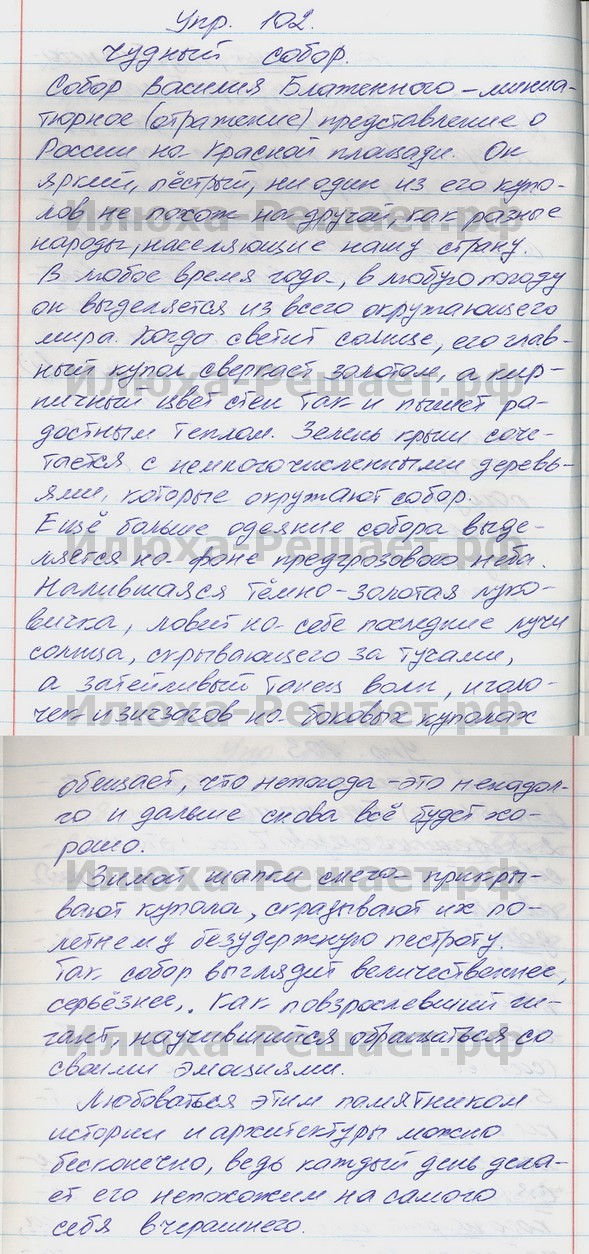 Упр. 102.
Чудный собор.
Собор Василия Блаженного – миниа-
тюрное (отражение) представление о
России на Красной площади. Он
яркий, пёстрый, ни один из его купо-
лов не похож на другой, как разные
народы, населяющие нашу страну.
В любое время года, в любую погоду
он выделяется из всего окружающего
мира. Когда светит солнце, его глав-
ный купол сверкает золотом, а кир-
пичный цвет стен так и пышет ра-
достным теплом. Зелень крыш соче-
тается с немногочисленными деревь-
ями, которые окружают собор.
Ещё больше одеяние собора выде-
ляется на фоне предгрозового неба.
Налившаяся тёмно-золотая луко-
вичка, ловит на себе последние лучи
солнца, скрывающего за тучами,
а затейливый танец волн, иголо-
чек и зигзагов на боковых куполах
обещает, что непогода – это ненадол-
го и дальше снова всё будет хо-
рошо.
Зимой шапки снега прикры-
вают купола, скрадывают их по-
летнему безудержную пестроту.
Так собор выглядит величественнее,
серьёзнее,. Как повзрослевший ги-
гант, научившийся обращаться со
своими эмоциями.
Любоваться этим памятником
истории и архитектуры можно
бесконечно, ведь каждый день дела-
ет его непохожим на самого
себя вчерашнего.
Илюха-Решает.рф
Илюха-Решает.рф
Илюха-Решает.рф
Илюха-Решает.рф
Илюха-Решает.рф
Илюха-Решает.рф